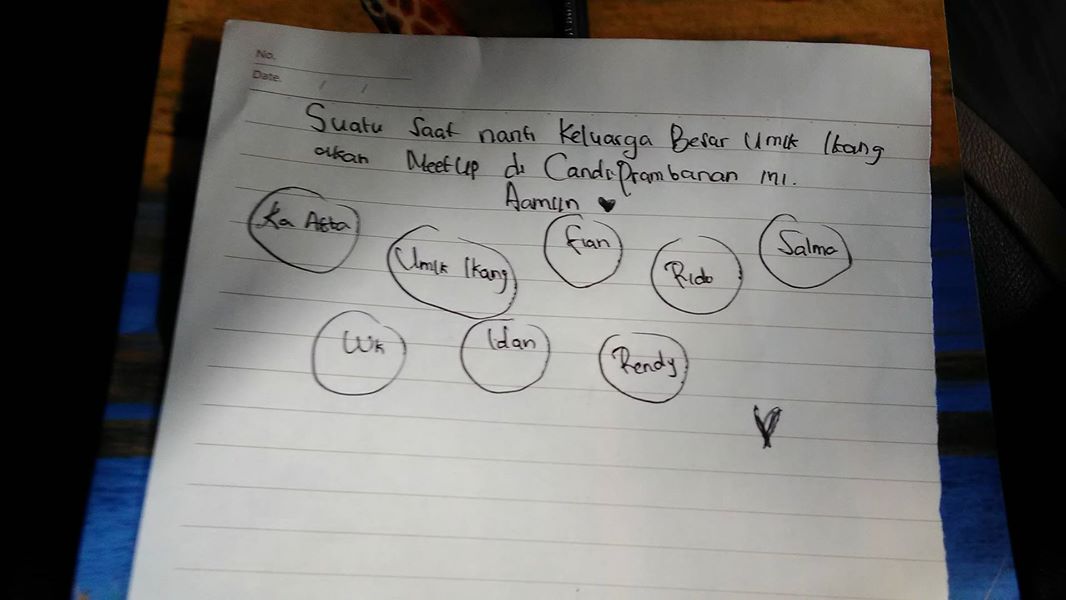 No.
Date. / /
Suatu Saat nanti Keluarga Besar Umik Ikang
akan MeetUp di Candi Prambanan ini.
Aamiin ♥
Ka Asta
Umik Ikang
Fian
Rido
Salma
Idan
Rendy